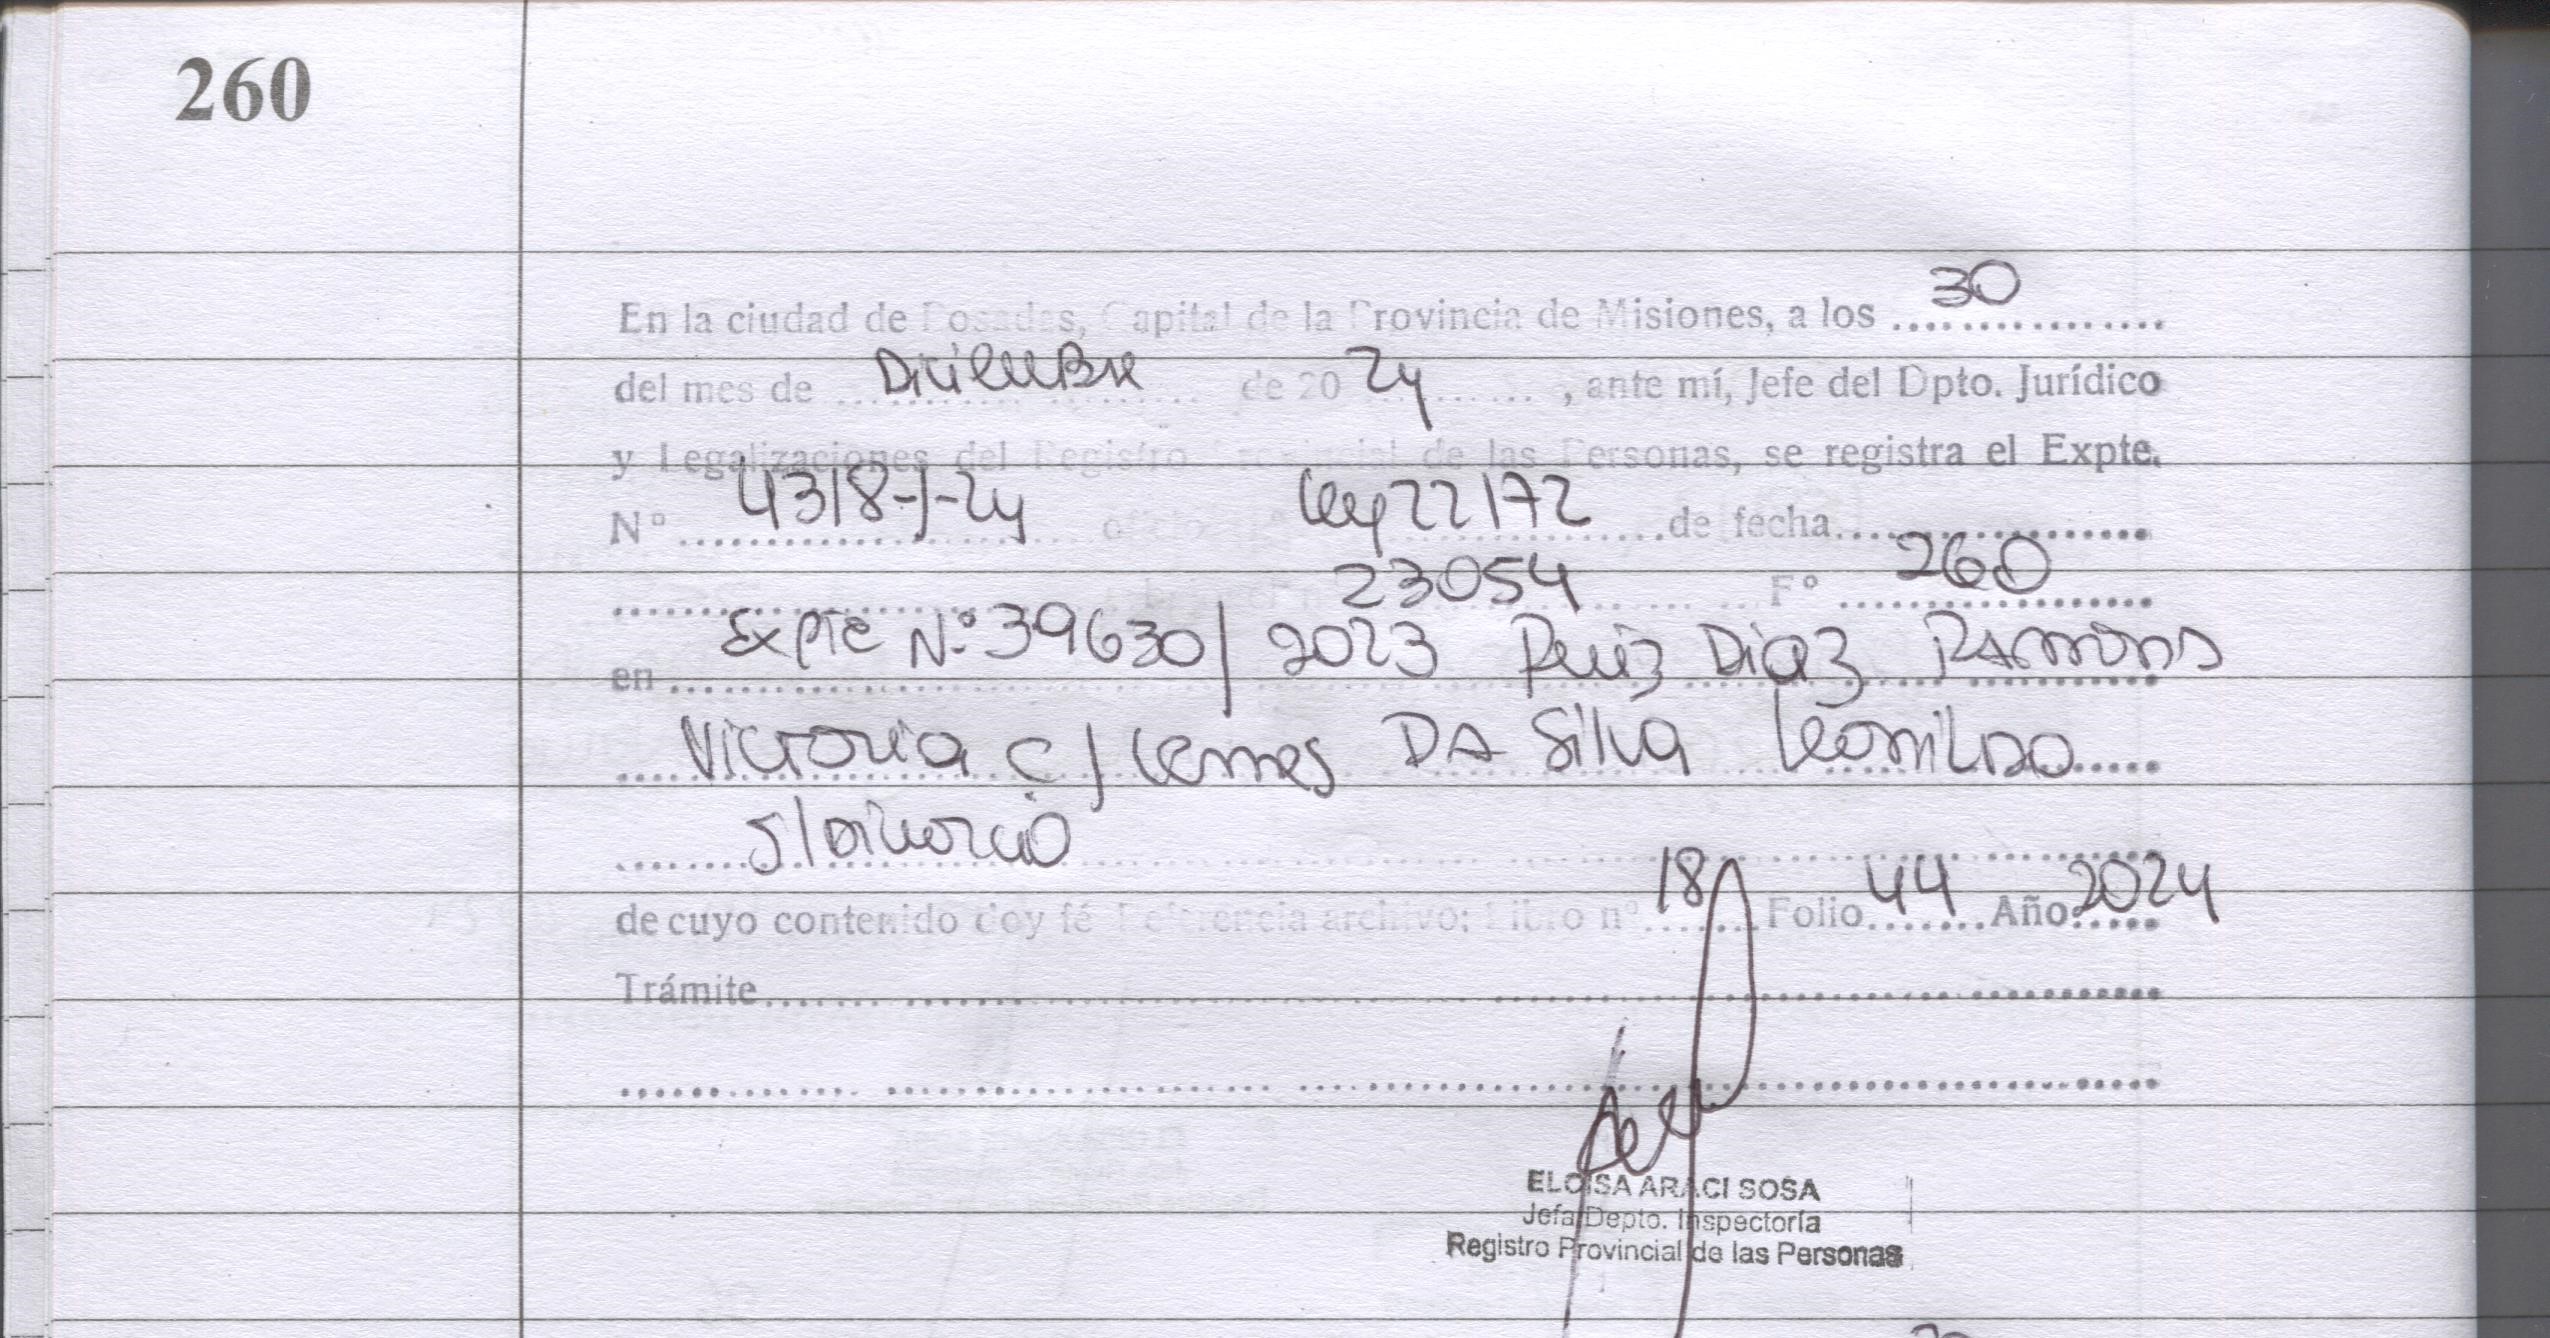 260
En la ciudad de Posadas, Capital de la Provincia de Misiones, a los 30
del mes de Diciembre de 2024, ante mí, Jefe del Dpto. Jurídico
y Legalizaciones del Registro Provincial de las Personas, se registra el Expte.
N° 4318-J-24 oficio Ley 22172 de fecha
23054 F° 260
en Expte N° 39630/2023 Ruiz Diaz Ramona
Victoria c/ Lemes DA Silva Leonildo
s/Divorcio
de cuyo contenido doy fé Referencia archivo: Libro n° 18 Folio 44 Año: 2024
Trámite
ELOISA ARACI SOSA
Jefa Depto. Inspectoría
Registro Provincial de las Personas